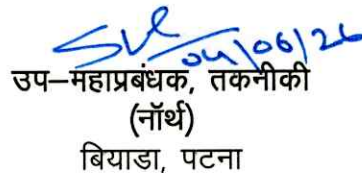 04/06/26
उप–महाप्रबंधक, तकनीकी
(नॉर्थ)
बियाडा, पटना